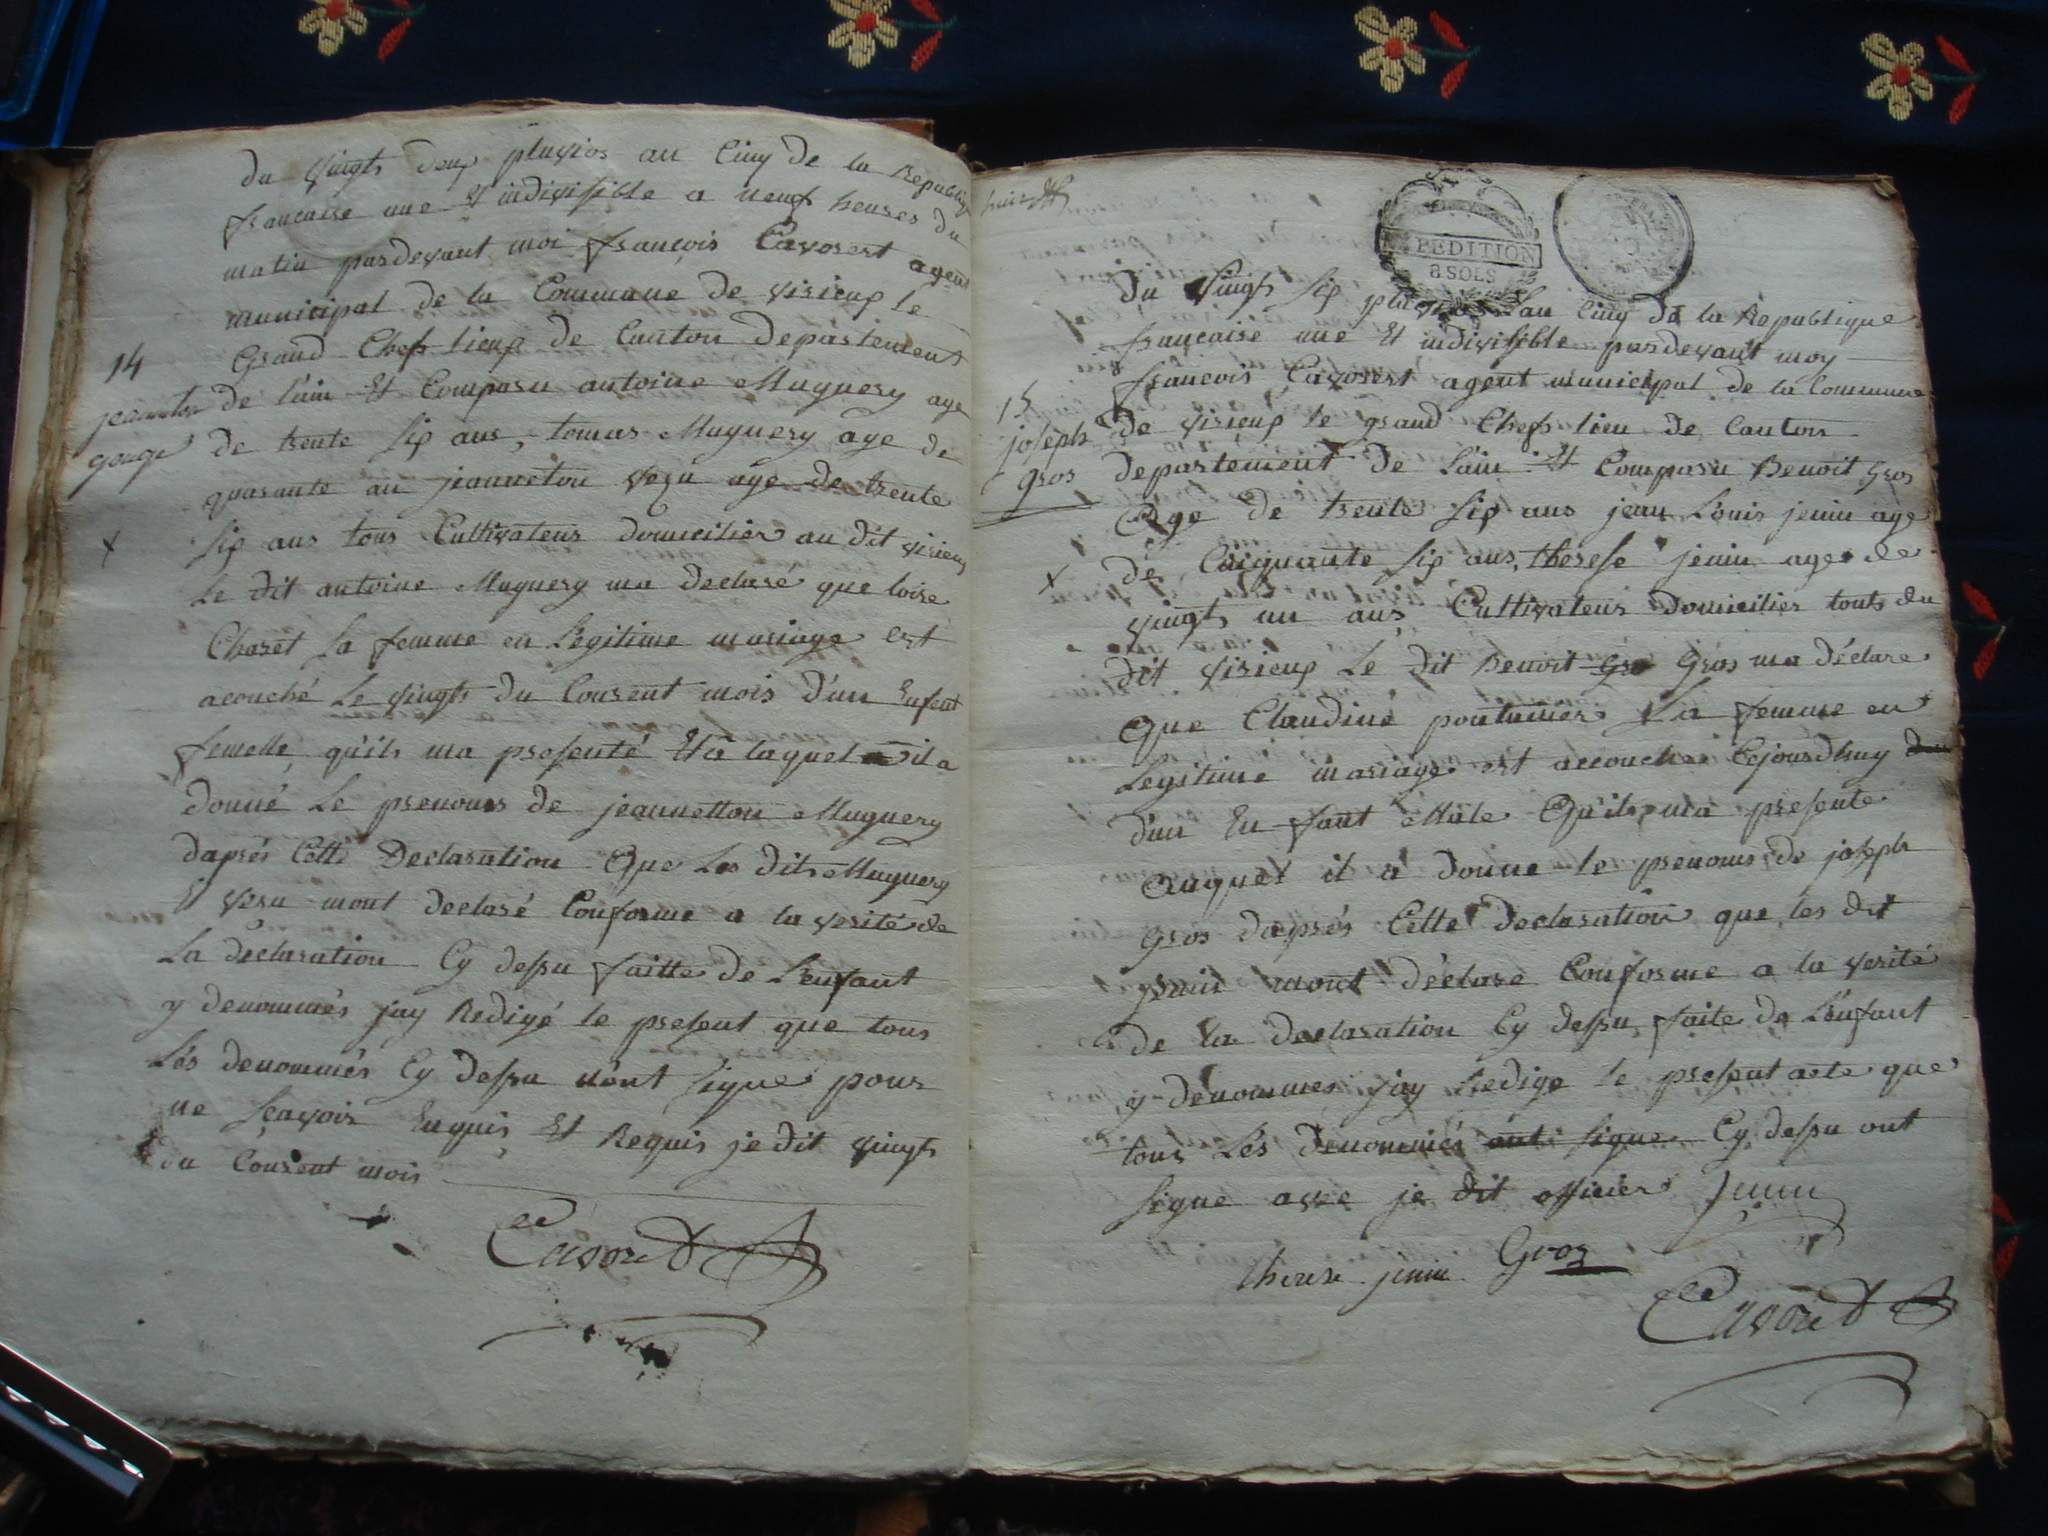 du vingts deux pluvios an Cinq de la Republique
francaise une Et indivisible a neuf heures du
matin pardevant moi francois Cavoret agent
municipal de la Commune de virieux le
Grand Chef lieux de Canton departement
14
jeanneton
de l'ain Et Comparu antoine Muguery age
de trente six ans, tomas Muguery age de
quarante an jeanneton vezu age de trente
six ans tous Cultivateurs domicilier au dit virieux
Le dit antoine Muguery ma declaré que loise
Charet sa femme en Legitime mariage est
acouché Le vingts du Courent mois d'un Enfent
femelle, qu'ils ma presenté Et a laquel il a
donné Le prenoms de jeannetton Muguery
dapres Cette Declaration Que Les dits Muguery
Et vezu mont declaré Conforme a la verité de
La declaration Cy dessu faitte de L'enfant
y denommés jay Redigé le present que tous
Lés denommés Cy dessu nont signe pour
ne sçavoir Enquis Et Requis je dit vingts
du Courent mois
Cavoret
huit
EXPEDITION
8 SOLS
du vingts six pluvios Lan Cinq de la Republique
francaise une Et indivisible pardevant moy
francois Cavoret agent municipal de la Commune
15
joseph
gros
de virieux le grand Chef lieu de Canton
departement de L'ain Et Comparu Benoit Gros
Age de trente six ans jean Louis jenin age
de Cinquante six ans, therese jenin agee de
vingts un ans Cultivateurs domicilier touts du
dit virieux Le dit Benoit Gro Gros ma déclare
Que Claudine pontannier sa femme en
Legitime mariage est accouchee Cejourdhuy
d'un Enfant Mâle Qu'ils ma presente
Auquel il a donne le prenoms de joseph
gros dapres Cette declaration que les dit
jenin mont déclare Conforme a la verité
de La declaration Cy dessu faite de L'enfant
y denommes jay Redige le present acte que
tous Lés denommés ont signe Cy dessu ont
signe avec je dit officier Jenin
therese jenin Gros
Cavoret